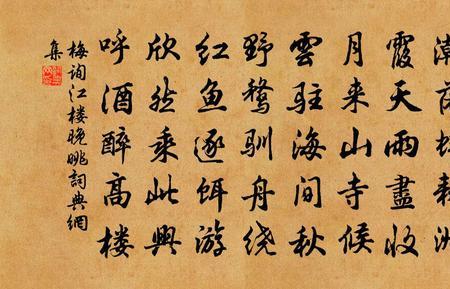 霞天雨盡收
月来山寺候
雲駐海間秋
野鶩馴舟绕
红魚逐餌游
欣然乘此興
呼酒醉高楼
梅詢江楼晚眺詞典網
集